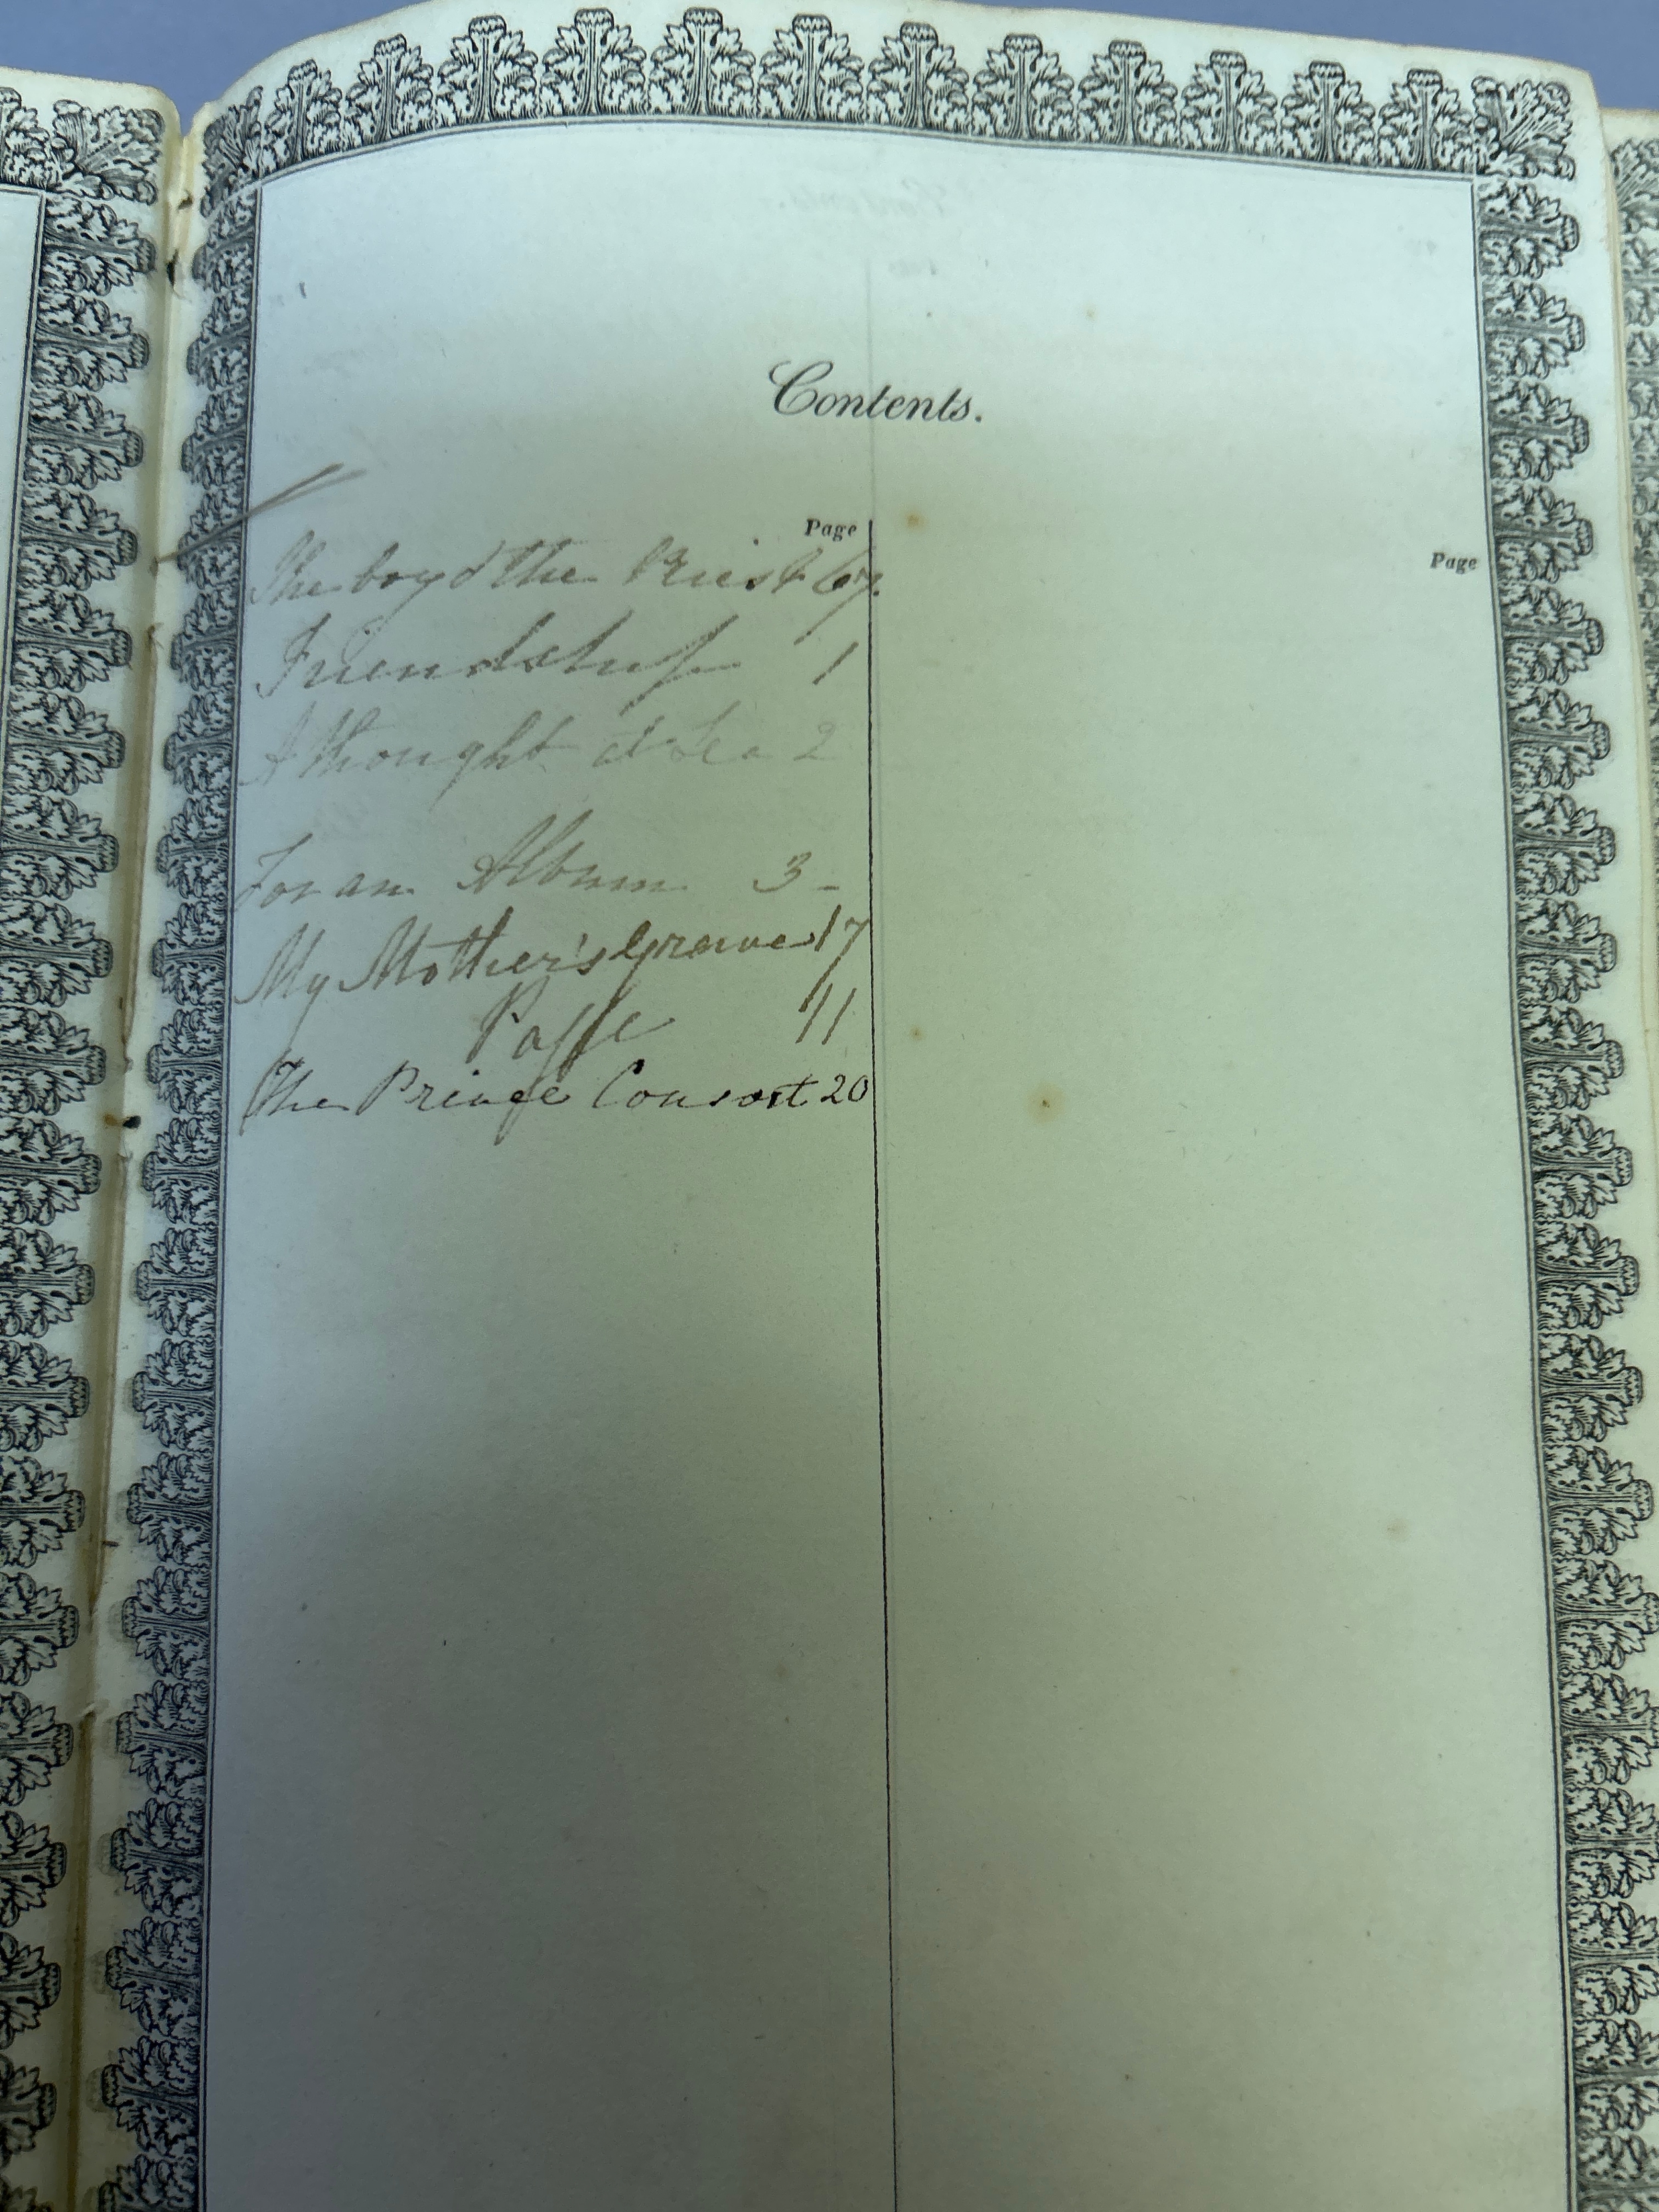 Contents.
Page
Page
The boy & the Priest 67.
Friendship 1
A thought at Sea 2
For an Album 3 -
My Mother's Grave 17
11
The Prince Consort 20